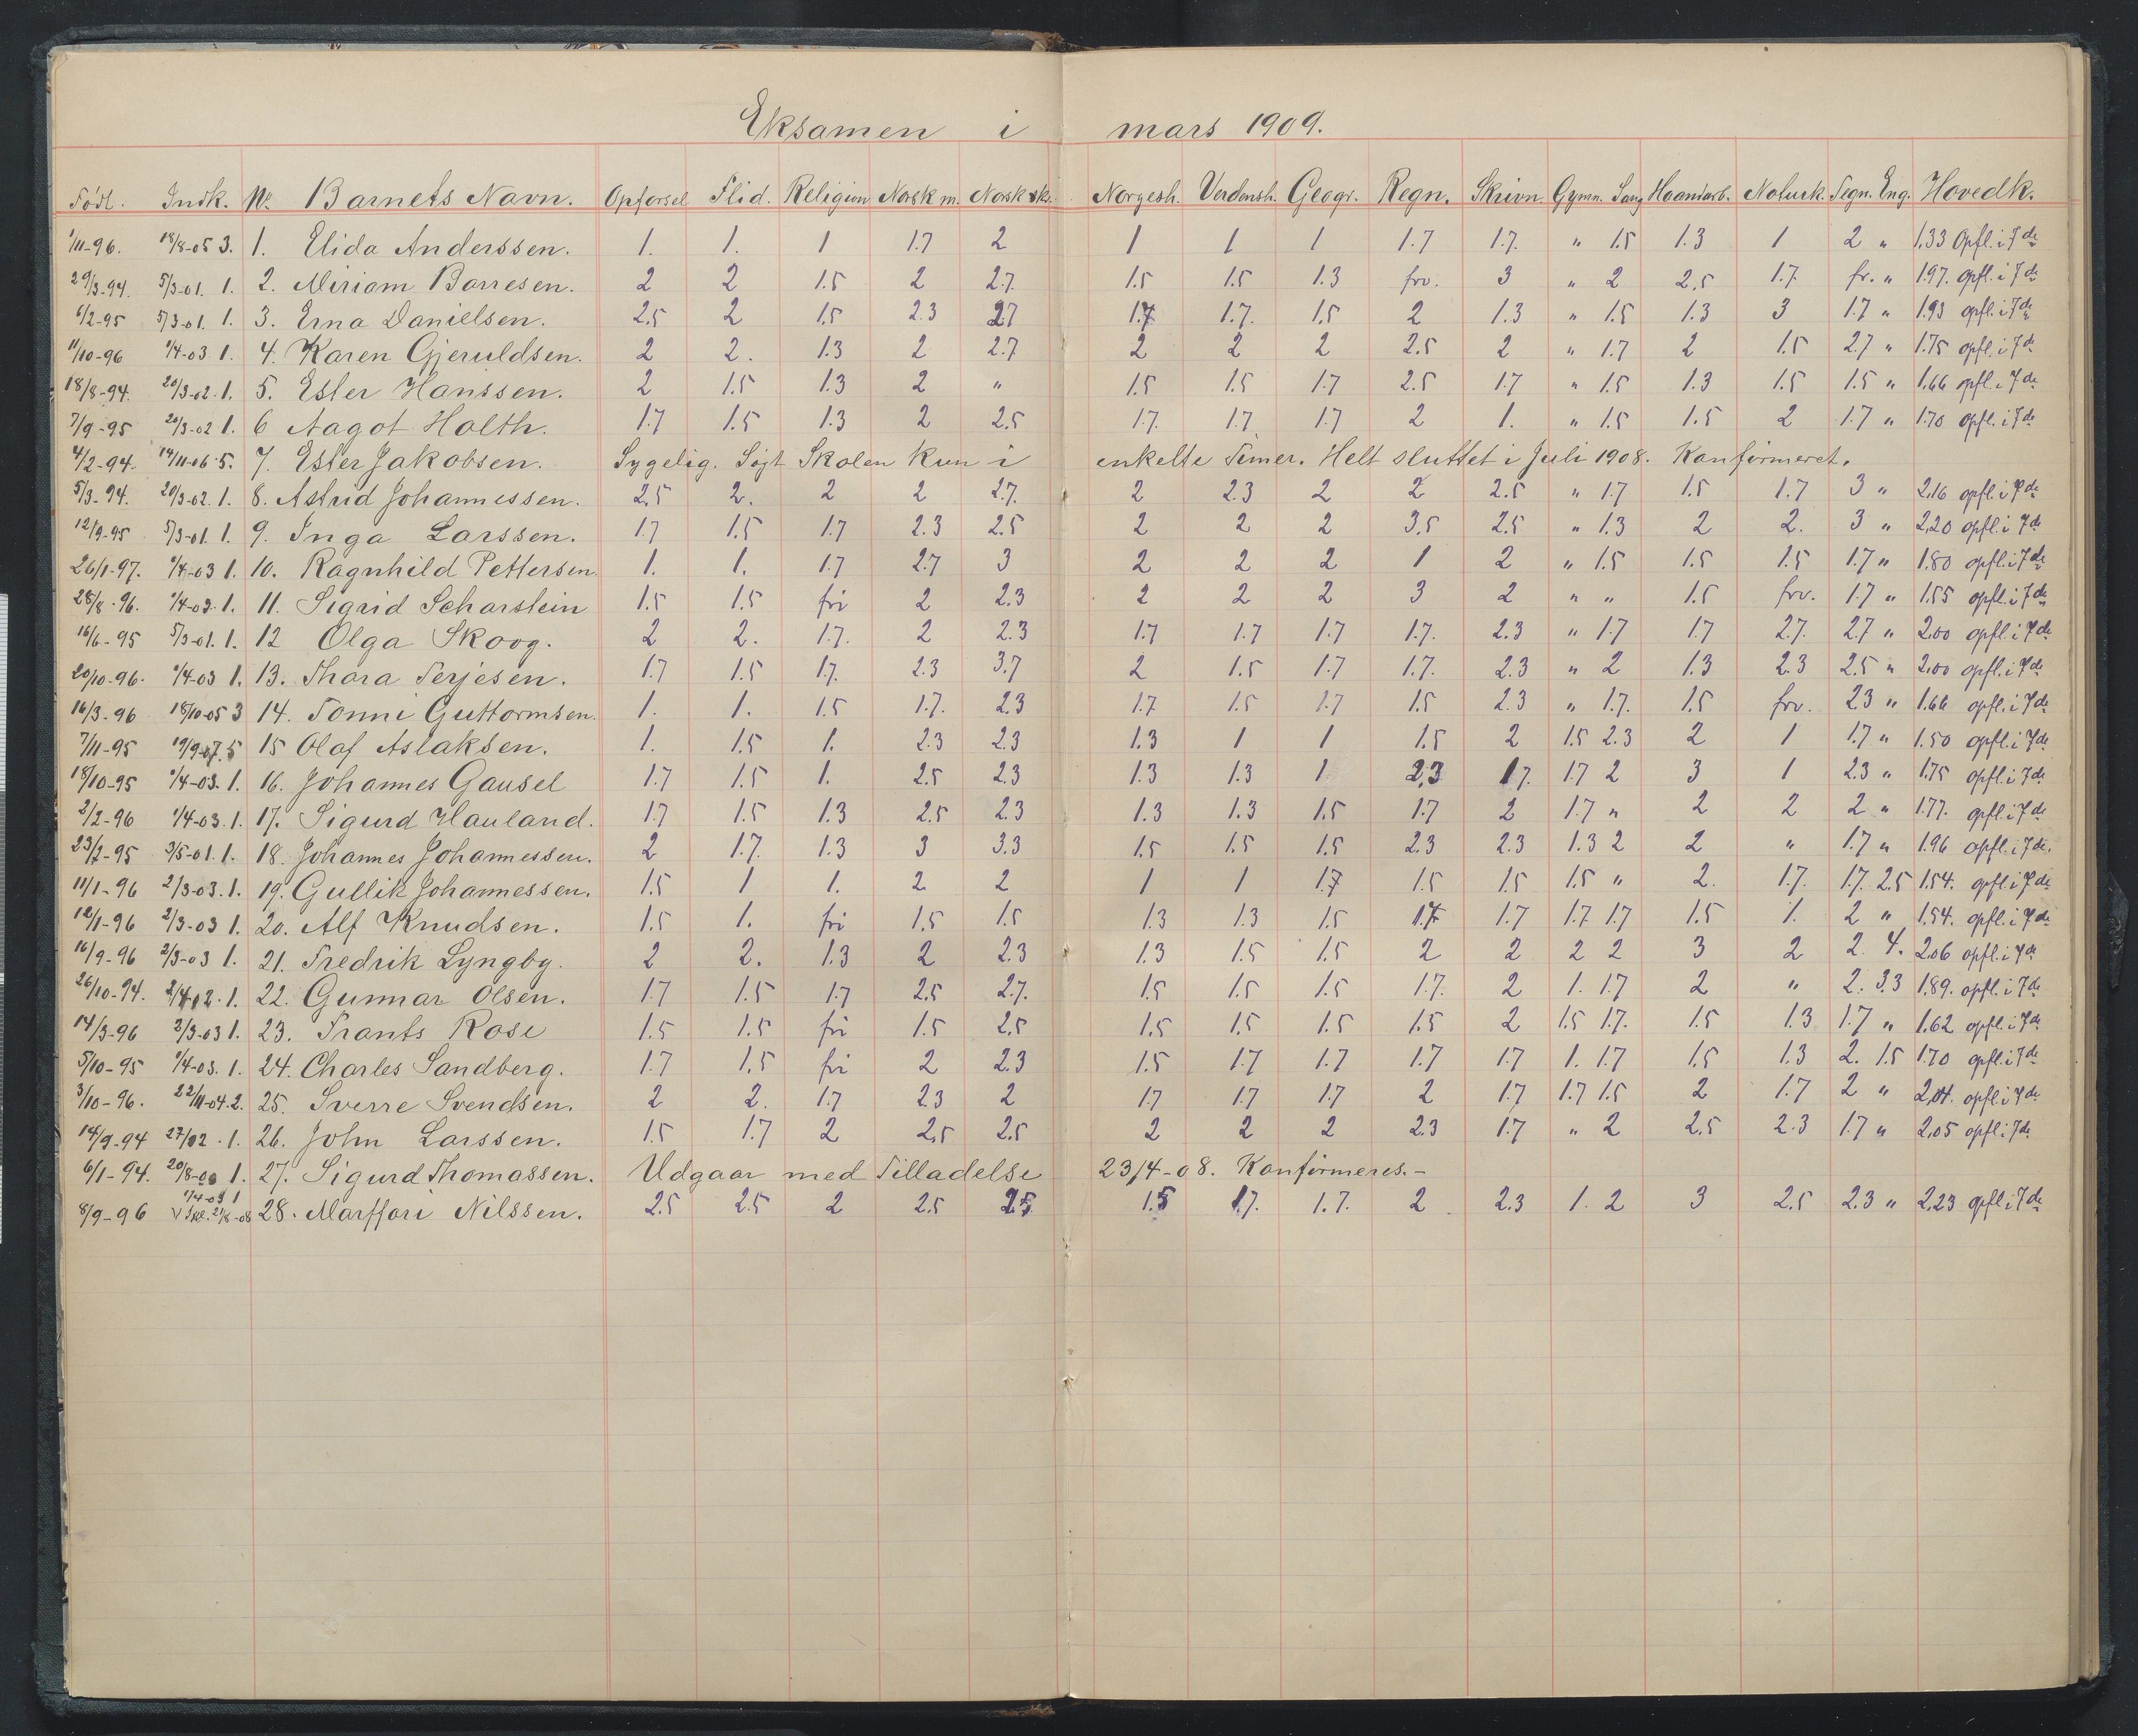 Eksamen i mars 1909.
Født. Indk. No. Barnets Navn. Opførsel Flid. Religion Norsk m. Norsk skr. Norgesh. Verdensh. Geogr. Regn. Skrivn. Gymn. Sang Haandarb. Naturk. Tegn. Eng. Hovedk.
1/11-96. 18/8-05 3. 1. Elida Anderssen. 1. 1. 1 1.7 2 1 1 1 1.7 1.7. " 1.5 1.3 1 2 " 1.33 Opfl. i 7de
29/3-94. 5/3-01. 1. 2. Miriam Barresen. 2 2 1.5 2 2.7. 1.5 1.5 1.3 frv. 3 " 2 2.5 1.7. fr. " 1.97. opfl. i 7de
6/2-95 5/3-01. 1. 3. Erna Danielsen. 2.5 2 1.5 2.3 2.7 1.7 1.7. 1.5 2 1.3 " 1.5 1.3 3 1.7 " 1.93 opfl. i 7de
11/10-96 1/4-03. 1. 4. Karen Gjeruldsen. 2 2. 1.3 2 2.7 2 2 2 2.5 2 " 1.7 2 1.5 2.7 " 1.75 opfl. i 7de
18/8-94. 20/3-02. 1. 5. Ester Hanssen. 2 1.5 1.3 2 " 1.5 1.5 1.7 2.5 1.7 " 1.5 1.3 1.5 1.5 " 1.66 opfl. i 7de
7/9-95 20/3-02 1. 6 Aagot Holth. 1.7 1.5 1.3 2 2.5 1.7. 1.7 1.7 2 1. " 1.5 1.5 2 1.7 " 1.70 opfl. i 7de
4/2-94. 14/11-06. 5. 7. Ester Jakobsen. Sygelig. Søgt Skolen kun i enkelte Timer. Helt sluttet i Juli 1908. Konfirmeret.
5/3-94. 20/3-02. 1. 8. Astrid Johannessen. 2.5 2. 2 2 2.7. 2 2.3 2 2 2.5 " 1.7 1.5 1.7 3 " 2.16 opfl. i 7de
12/9-95 5/3-01. 1. 9. Inga Larssen. 1.7 1.5 1.7 2.3 2.5 2 2 2 3.5 2.5 " 1.3 2 2. 3 " 2.20 opfl. i 7de
26/1-97. 1/4-03 1. 10. Ragnhild Pettersen. 1. 1. 1.7 2.7 3 2 2 2 1 2 " 1.5 1.5 1.5 1.7 " 1.80 opfl. i 7de
28/8-96. 1/4-03. 1. 11. Sigrid Scharstein 1.5 1.5 fri 2 2.3 2 2 2 3 2 " " 1.5 frv. 1.7 " 1.55 opfl. i 7de
16/6-95 5/3-01. 1. 12 Olga Skoog. 2 2. 1.7. 2 2.3 1.7 1.7 1.7 1.7. 2.3 " 1.7 1.7 2.7. 2.7 " 2.00 opfl. i 7de
20/10-96. 1/4-03 1. 13. Thora Terjesen. 1.7 1.5 1.7. 2.3 3.7 2 1.5 1.7 1.7. 2.3 " 2 1.3 2.3 2.5 " 2.00 opfl. i 7de
16/3-96 18/10-05 3 14. Tonni Guttormsen. 1. 1. 1.5 1.7. 2.3 1.7 1.5 1.7 1.5 2.3 " 1.7. 1.5 frv. 2.3 " 1.66 opfl. i 7de
7/11-95 19/9-07. 5 15 Olaf Aslaksen. 1. 1.5 1. 2.3 2.3 1.3 1 1 1.5 2 1.5 2.3 2 1 1.7 " 1.50 opfl. i 7de
18/10-95 1/4-03. 1. 16. Johannes Gausel 1.7 1.5 1. 2.5 2.3 1.3 1.3 1 2.3 1.7. 1.7 2 3 1 2.3 " 1.75 opfl. i 7de
2/2-96 1/4-03. 1. 17. Sigurd Hauland. 1.7 1.5 1.3 2.5 2.3 1.3 1.3 1.5 1.7 2 1.7 " 2 2 2 " 1.77. opfl. i 7de
23/2-95 3/5-01. 1. 18. Johannes Johannessen. 2 1.7. 1.3 3 3.3 1.5 1.5 1.5 2.3 2.3 1.3 2 2 " 1.7 " 1.96 opfl. i 7de.
11/1-96 2/3-03. 1. 19. Gullik Johannessen. 1.5 1 1. 2 2 1 1 1.7 1.5 1.5 1.5 " 2. 1.7. 1.7. 2.5 1.54. opfl. i 7de
12/1-96 2/3-03 1. 20. Alf Knudsen. 1.5 1. fri 1.5 1.5 1.3 1.3 1.5 1.7 1.7 1.7 1.7 1.5 1. 2 " 1.54. opfl. i 7de
16/9-96 2/3-03 1. 21. Fredrik Lyngby. 2 2. 1.3 2 2.3 1.3 1.5 1.5 2 2 2 2 3 2 2. 4. 2.06 opfl. i 7de
26/10-94. 2/4-02. 1. 22. Gunnar Olsen. 1.7 1.5 1.7 2.5 2.7. 1.5 1.5 1.5 1.7. 2 1. 1.7 2 " 2. 3.3 1.89. opfl. i 7de
14/3-96 2/3-03 1. 23. Trants Rose 1.5 1.5 fri 1.5 2.5 1.5 1.5 1.5 1.5 2 1.5 1.7. 1.5 1.3 1.7 " 1.62 opfl. i 7de
5/10-95 1/4-03. 1. 24. Charles Sandberg. 1.7 1.5 fri 2 2.3 1.5 1.7 1.7 1.7 1.7 1. 1.7 1.5 1.3 2. 1.5 1.70 opfl. i 7de
3/10-96. 22/11-04. 2. 25. Sverre Svendsen. 2 2. 1.7 2.3 2 1.7 1.7 1.7 2 1.7 1.7 1.5 2 1.7 2 " 2.04. opfl. i 7de
14/9-94 27/02. 1. 26. John Larssen. 1.5 1.7 2 2.5 2.5 2 2 2 2.3 1.7 " 2 2.5 2.3 1.7 " 2.05 opfl. i 7de
6/1-94. 20/8-00 1. 27. Sigurd Thomassen. Udgaar med Tilladelse 23/4-08. Konfirmeres.-
1/4-03 1
8/9-96 21/8-08 28. Marffori Nilssen. 2.5 2.5 2 2.5 2.5 1.5 1.7. 1.7. 2 2.3 1. 2 3 2.5 2.3 " 2.23 opfl. i 7de